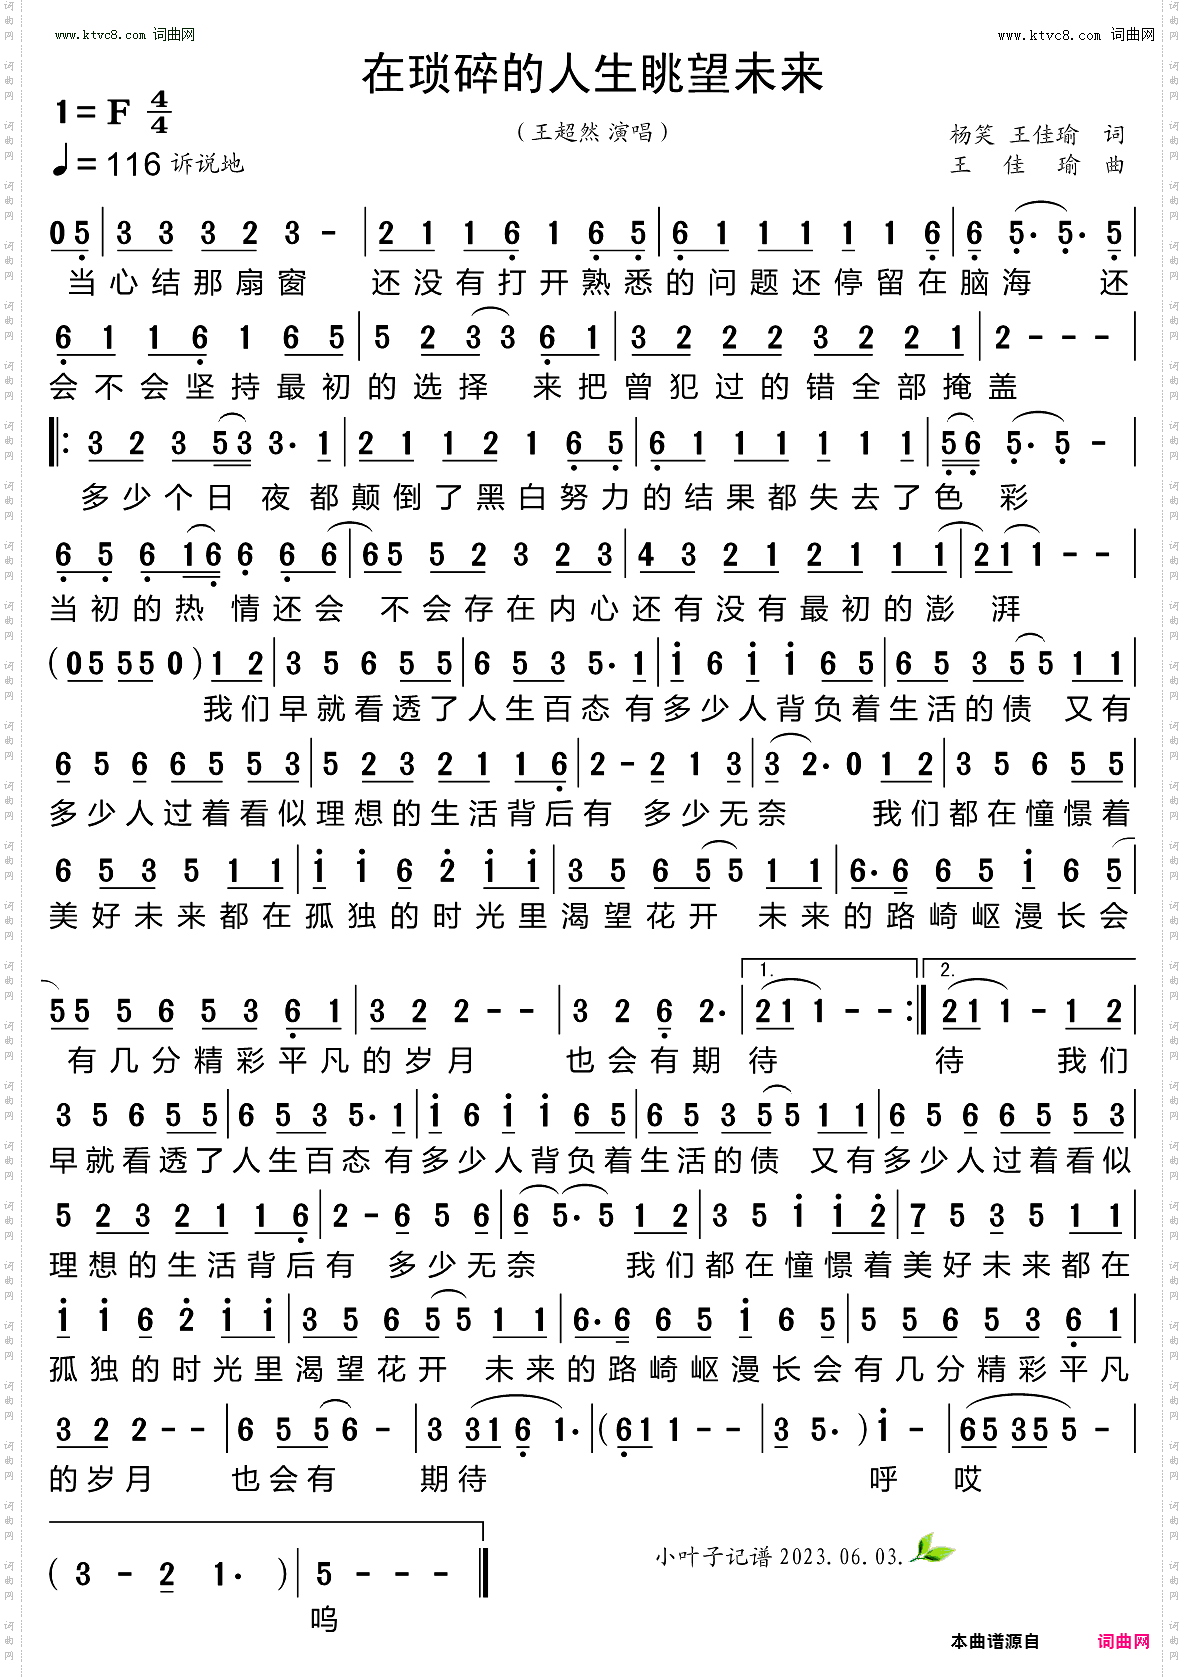 www.ktvc8.com 词曲网
www.ktvc8.com 词曲网
在琐碎的人生眺望未来
1=F 4/4
（王超然 演唱）
杨笑 王佳瑜 词
♩=116 诉说地
王 佳 瑜 曲
0 5 | 3 3 3 2 3 - | 2 1 1 6 1 6 5 | 6 1 1 1 1 6 | 6 5· 5· 5 |
当心结那扇窗 还没有打开熟悉的问题还停留在脑海 还
6 1 1 6 1 6 5 | 5 2 3 3 6 1 | 3 2 2 2 3 2 2 1 | 2 - - - |
会不会坚持最初的选择 来把曾犯过的错全部掩盖
‖: 3 2 3 5 3 3· 1 | 2 1 1 2 1 6 5 | 6 1 1 1 1 1 1 | 5 6 5· 5 - |
多少个日 夜都颠倒了黑白努力的结果都失去了色 彩
6 5 6 1 6 6 6 6 | 6 5 5 2 3 2 3 | 4 3 2 1 2 1 1 1 | 2 1 1 - - |
当初的热 情还会 不会存在内心还有没有最初的澎 湃
( 0 5 5 5 0 ) 1 2 | 3 5 6 5 5 | 6 5 3 5· 1 | i 6 i i 6 5 | 6 5 3 5 5 1 1 |
我们早就看透了人生百态 有多少人背负着生活的债 又有
6 5 6 6 5 5 3 | 5 2 3 2 1 1 6 | 2 - 2 1 3 | 3 2· 0 1 2 | 3 5 6 5 5 |
多少人过着看似理想的生活背后有 多少无奈 我们都在憧憬着
6 5 3 5 1 1 | i i 6 2 i i | 3 5 6 5 5 1 1 | 6· 6 6 5 i 6 5 |
美好未来都在孤独的时光里渴望花开 未来的路崎岖漫长会
5 5 5 6 5 3 6 1 | 3 2 2 - - | 3 2 6 2· | 1. 2 1 1 - - :‖ 2. 2 1 1 - 1 2 |
有几分精彩平凡的岁月 也会有期 待 待 我们
3 5 6 5 5 | 6 5 3 5· 1 | i 6 i i 6 5 | 6 5 3 5 5 1 1 | 6 5 6 6 5 5 3 |
早就看透了人生百态 有多少人背负着生活的债 又有多少人过着看似
5 2 3 2 1 1 6 | 2 - 6 5 6 | 6 5· 5 1 2 | 3 5 i i 2 | 7 5 3 5 1 1 |
理想的生活背后有 多少无奈 我们都在憧憬着美好未来都在
i i 6 2 i i | 3 5 6 5 5 1 1 | 6· 6 6 5 i 6 5 | 5 5 6 5 3 6 1 |
孤独的时光里渴望花开 未来的路崎岖漫长会有几分精彩平凡
3 2 2 - - | 6 5 5 6 - | 3 3 1 6 1· | ( 6 1 1 - - | 3 5· ) i - | 6 5 3 5 5 - |
的岁月 也会有 期待 呼 哎
( 3 - 2 1· ) | 5 - - - ‖
呜
小叶子记谱 2023.06.03.
本曲谱源自 词曲网